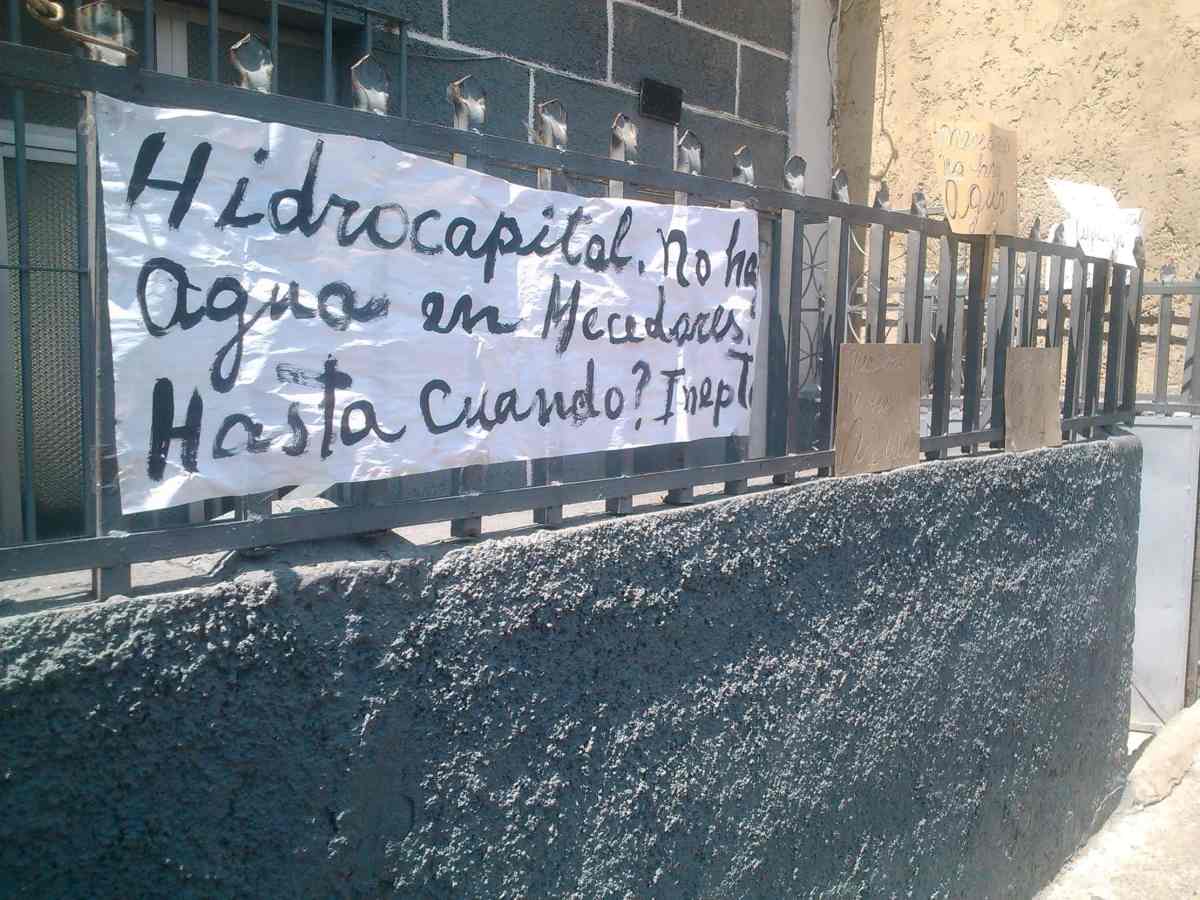 Hidrocapital. No ha
Agua en Mecedores!
Hasta Cuando? Inept
no hay
Agua